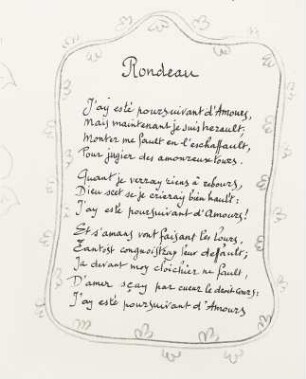 Rondeau
J'ay esté poursuivant d'Amours,
Mais maintenant je suis herault.
Monter me fault en l'eschaffault,
Pour jugier des amoureux tours.
Quant je verray riens à rebours,
Dieu scet se je crieray bien hault:
J'ay esté poursuivant d'Amours!
Et s'amans vont faisant les lours,
Tantost congnoistray leur default;
Ja devant moy clochier ne fault;
D'amer sçay par cueur le droit cours:
J'ay esté poursuivant d'Amours